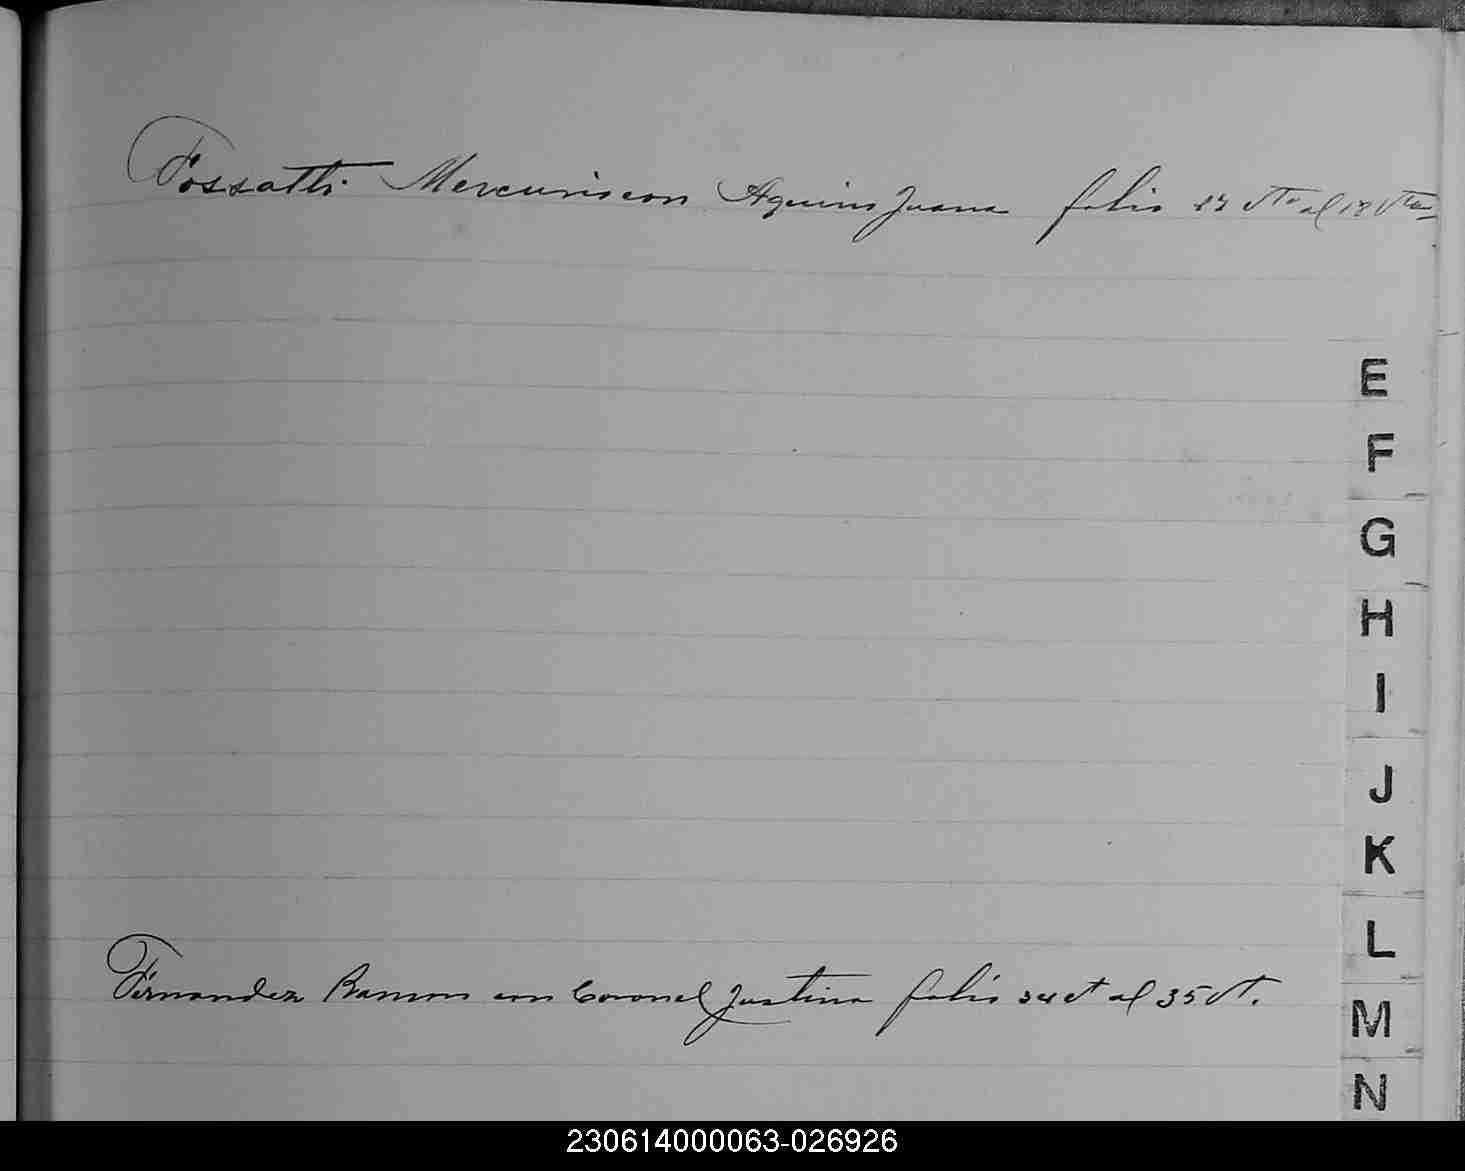 Fossatti Mercurio con Aquino Juana folio 17 vto al 18 vto
E
F
G
H
I
J
K
L
Fernandez Ramon con Coronel Justina folio 34 vt al 35 vt.
M
N
230614000063-026926